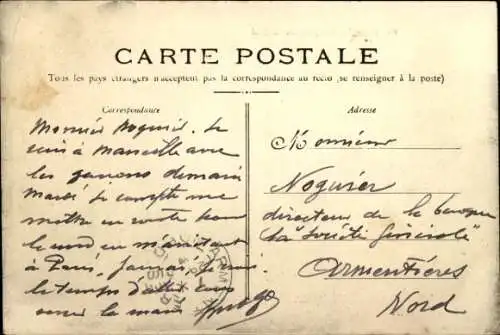 CARTE POSTALE
Tous les pays étrangers n'acceptent pas la correspondance au recto (se renseigner à la poste)
Correspondance
Adresse
Monsieur
Noguier
directeur de la banque
"La Société Générale"
Armentières
Nord
Je
suis à Marseille avec
demain
Mardi je compte me
mettre en route pour
le nord en m'arrêtant
à Paris,
le temps d'aller
serrer la main